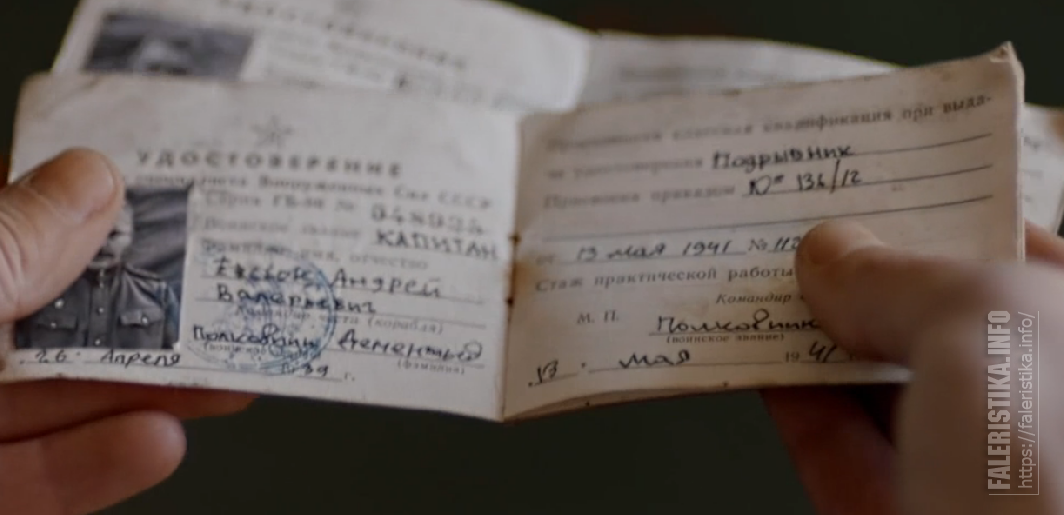 УДОСТОВЕРЕНИЕ
специалиста Вооруженных Сил СССР
Серия ГБ-М № 048024
Воинское звание КАПИТАН
Фамилия, отчество
Андрей
Валерьевич
Командир части (корабля)
Полковник Дементьев
(фамилия)
26 Апреля
г.
классная квалификация при выда-
удостоверения Подрывник
Присвоена приказом № 136/12
от 13 мая 1941 №
Стаж практической работы
Командир
М. П. Полковник
(воинское звание)
13 мая 1941
FALERISTIKA.INFO
https://faleristika.info/